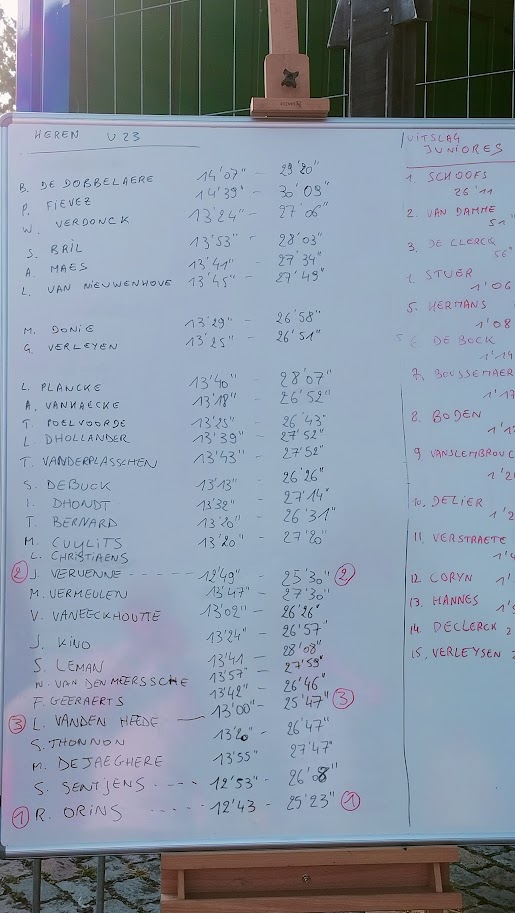 HEREN U23
B. DE DOBBELAERE 14'07" - 29'20"
P. FIEVEZ 14'39" - 30'09"
W. VERDONCK 13'24" - 27'06"
S. BRIL 13'53" - 28'03"
A. MAES 13'41" - 27'34"
L. VAN NIEUWENHOVE 13'45" - 27'49"
M. DONIE 13'29" - 26'58"
G. VERLEYEN 13'25" - 26'51"
L. PLANCKE 13'40" - 28'07"
A. VANHAECKE 13'18" - 26'52"
T. POELVOORDE 13'25" - 26'43"
L. DHOLLANDER 13'39" - 27'52"
T. VANDERPLASSCHEN 13'43" - 27'52"
S. DEBUCK 13'13" - 26'26"
I. DHONDT 13'32" - 27'14"
T. BERNARD 13'20" - 26'31"
M. CUYLITS 13'20" - 27'20"
L. CHRISTIAENS
2 J. VERVENNE ---- 12'49" - 25'30" 2
M. VERMEULEN 13'47" - 27'30"
V. VANEECKHOUTTE 13'02" - 26'26"
J. KINO 13'24" - 26'57"
S. LEMAN 13'41 - 28'08"
W. VAN DEN MEERSSCHE 13'57" - 27'59"
F. GEERAERTS 13'42" - 26'46"
3 L. VANDEN HEEDE — 13'00" - 25'47" 3
S. THONNON 13'20" - 26'47"
M. DEJAEGHERE 13'55" 27'47"
S. SENTJENS ---- 12'53" - 26'08"
1 R. ORINS ---- 12'43 - 25'23" 1
UITSLAG
JUNIORES
1. SCHOOFS
26'11
2. VAN DAMME
51"
3. DE CLERCQ
56"
STUER
1'06
5. HERMANS
1'08
DE BOCK
1'14
7. BOUSSEMAER
1'17
8. BODEN
9. VANSLEMBROUC
10. DELIER
11. VERSTRAETE
12. CORYN
13. HANNES
14. DECLERCK 2
15. VERLEYSEN